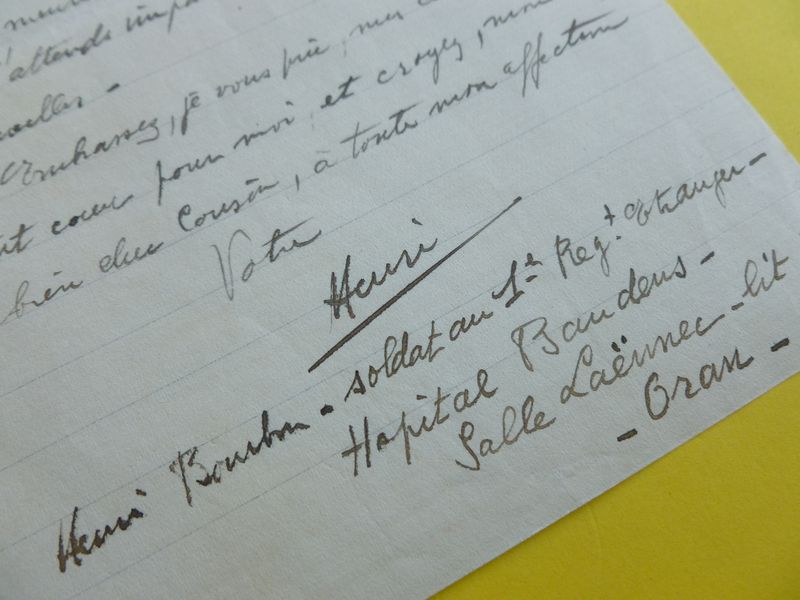 j'attends
Embrassez, je vous prie, mes
coeur pour moi, et croyez, mon
bien cher Cousin, à toute mon affection
Votre
Henri
Henri Bourbon - soldat au 1er Regt. Etranger -
Hopital Baudens -
Salle Laënnec - lit
- Oran -